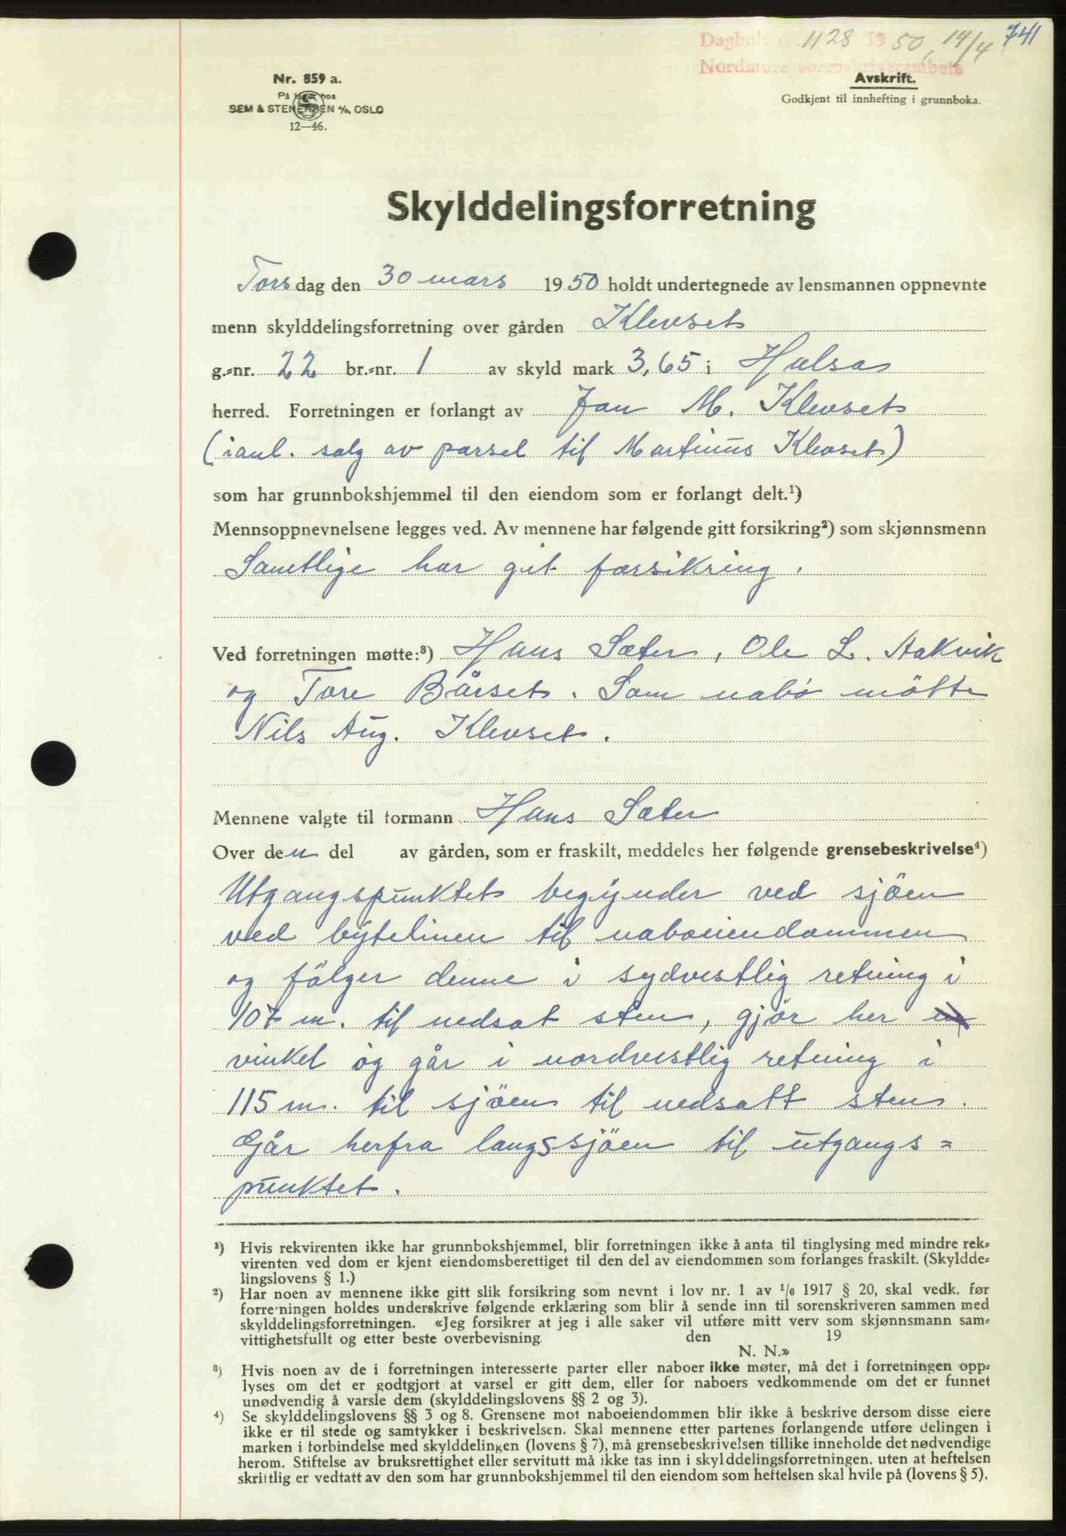 741
Dagbok 1128 1950, 14/4
Nordmøre sorenskriverembete
Nr. 859 a.
På lager hos
SEM & STENERSEN A/S, OSLO
12—46.
Avskrift.
Godkjent til innhefting i grunnboka.
Skylddelingsforretning
Torsdag den 30 mars 1950 holdt undertegnede av lensmannen oppnevnte
menn skylddelingsforretning over gården Klevset
g.=nr. 22 br.=nr. 1 av skyld mark 3,65 i Halsa
herred. Forretningen er forlangt av Jan M. Klevset
(ianl. salg av parsel til Martinus Klevset)
som har grunnbokshjemmel til den eiendom som er forlangt delt.¹)
Mennsoppnevnelsene legges ved. Av mennene har følgende gitt forsikring²) som skjønnsmenn
Samtlige har git forsikring.
Ved forretningen møtte:³) Hans Sæter, Ole L. Aakvik
og Tore Bårset. Som nabo møtte
Nils Aug. Klevset.
Mennene valgte til formann Hans Sæter
Over den del av gården, som er fraskilt, meddeles her følgende grensebeskrivelse⁴)
Utgangspunktet begynder ved sjöen
ved bytelinen til naboeiendommen
og fölger denne i sydvestlig retning i
107 m. til nedsat sten, gjör her
vinkel og går i nordvestlig retning i
115 m. til sjöen til nedsatt sten.
Går herfra langs sjöen til utgangs=
punktet.
¹) Hvis rekvirenten ikke har grunnbokshjemmel, blir forretningen ikke å anta til tinglysing med mindre rek=
virenten ved dom er kjent eiendomsberettiget til den del av eiendommen som forlanges fraskilt. (Skyldde=
lingslovens § 1.)
²) Har noen av mennene ikke gitt slik forsikring som nevnt i lov nr. 1 av 1/6 1917 § 20, skal vedk. før
forretningen holdes underskrive følgende erklæring som blir å sende inn til sorenskriveren sammen med
skylddelingsforretningen. «Jeg forsikrer at jeg i alle saker vil utføre mitt verv som skjønnsmann sam=
vittighetsfullt og etter beste overbevisning den 19
N. N.»
³) Hvis noen av de i forretningen interesserte parter eller naboer ikke møter, må det i forretningen opp=
lyses om det er godtgjort at varsel er gitt dem, eller for naboers vedkommende om det er funnet
unødvendig å varsle dem (skylddelingslovens §§ 2 og 3).
⁴) Se skylddelingslovens §§ 3 og 8. Grensene mot naboeiendommen blir ikke å beskrive dersom disse eiere
ikke er til stede og samtykker i beskrivelsen. Skal mennene etter partenes forlangende utføre delingen i
marken i forbindelse med skylddelingen (lovens § 7), må grensebeskrivelsen tillike inneholde det nødvendige
herom. Stiftelse av bruksrettighet eller servitutt må ikke tas inn i skylddelingsforretningen, uten at heftelsen
skriftlig er vedtatt av den som har grunnbokshjemmel til den eiendom som heftelsen skal hvile på (lovens § 5).